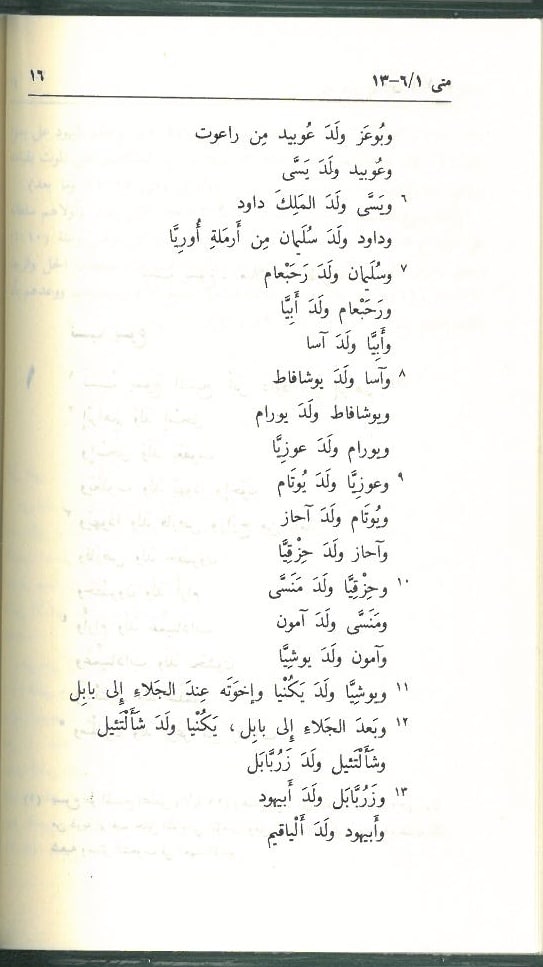 متى ١/٦-١٣ ١٦
وبُوعَز ولَدَ عُوبيد مِن راعوت
وعُوبيد ولَدَ يَسَّى
٦ ويَسَّى ولَدَ المَلِكَ داود
وداود ولَدَ سُلَيمان مِن أَرمَلةِ أُوريَّا
٧ وسُلَيمان ولَدَ رَحَبْعام
ورَحَبْعام ولَدَ أَبِيَّا
وأَبِيَّا ولَدَ آسا
٨ وآسا ولَدَ يوشافاط
ويوشافاط ولَدَ يورام
ويورام ولَدَ عوزِيَّا
٩ وعوزِيَّا ولَدَ يُوتَام
ويُوتَام ولَدَ آحاز
وآحاز ولَدَ حِزْقِيَّا
١٠ وحِزْقِيَّا ولَدَ مَنَسَّى
ومَنَسَّى ولَدَ آمون
وآمون ولَدَ يوشِيَّا
١١ ويوشِيَّا ولَدَ يَكُنْيا وإخوَتَه عِندَ الجَلاءِ إِلى بابِل
١٢ وبَعدَ الجَلاءِ إِلى بابِل، يَكُنْيا ولَدَ شَأَلْتَئيل
وشَأَلْتَئيل ولَدَ زَرُبَّابَل
١٣ وزَرُبَّابَل ولَدَ أَبيهود
وأَبيهود ولَدَ أَلْياقيم